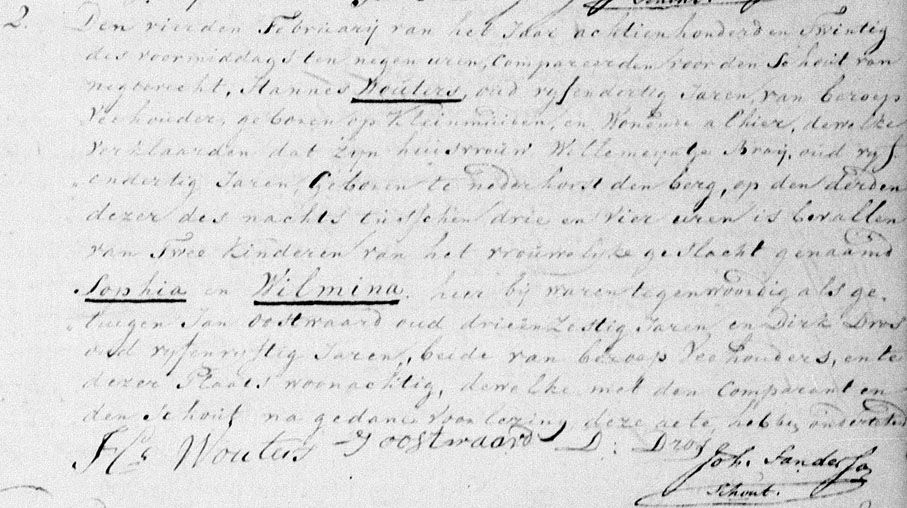 Schout.
2. Den vierden Februarij van het Jaar achtienhonderd en Twintig
des voormiddags ten negen uren, Compareerden voor den Schout van
Nigtevecht, Hannes Wouters, oud vyfendertig Jaren, van beroep
Veehouder, geboren op Kleinmuiden, en Wonende alhier, dewelke
Verklaarden dat zyn huisvrouw Willemeyntje Braij, oud vyf-
endertig Jaren, Geboren te nederhorst den berg, op den derden
dezer des nachts tusschen drie en vier uren is bevallen
van Twee Kinderen van het vrouwelyke geslacht genaamd
Sophia en Wilmina. hier bij waren tegenwoordig als ge-
tuigen Jan Oostwaard oud drieënzestig Jaren en Dirk Dros
oud vyfenvyftig Jaren, beide van beroep Veehouders, en te
dezer Plaats woonachtig, dewelke met den Comparent en
den Schout na gedane Voorlezing deze acte, hebben onderteekend
Hs Wouters J oostwaard D: Dros
Joh. Sanders
Schout.